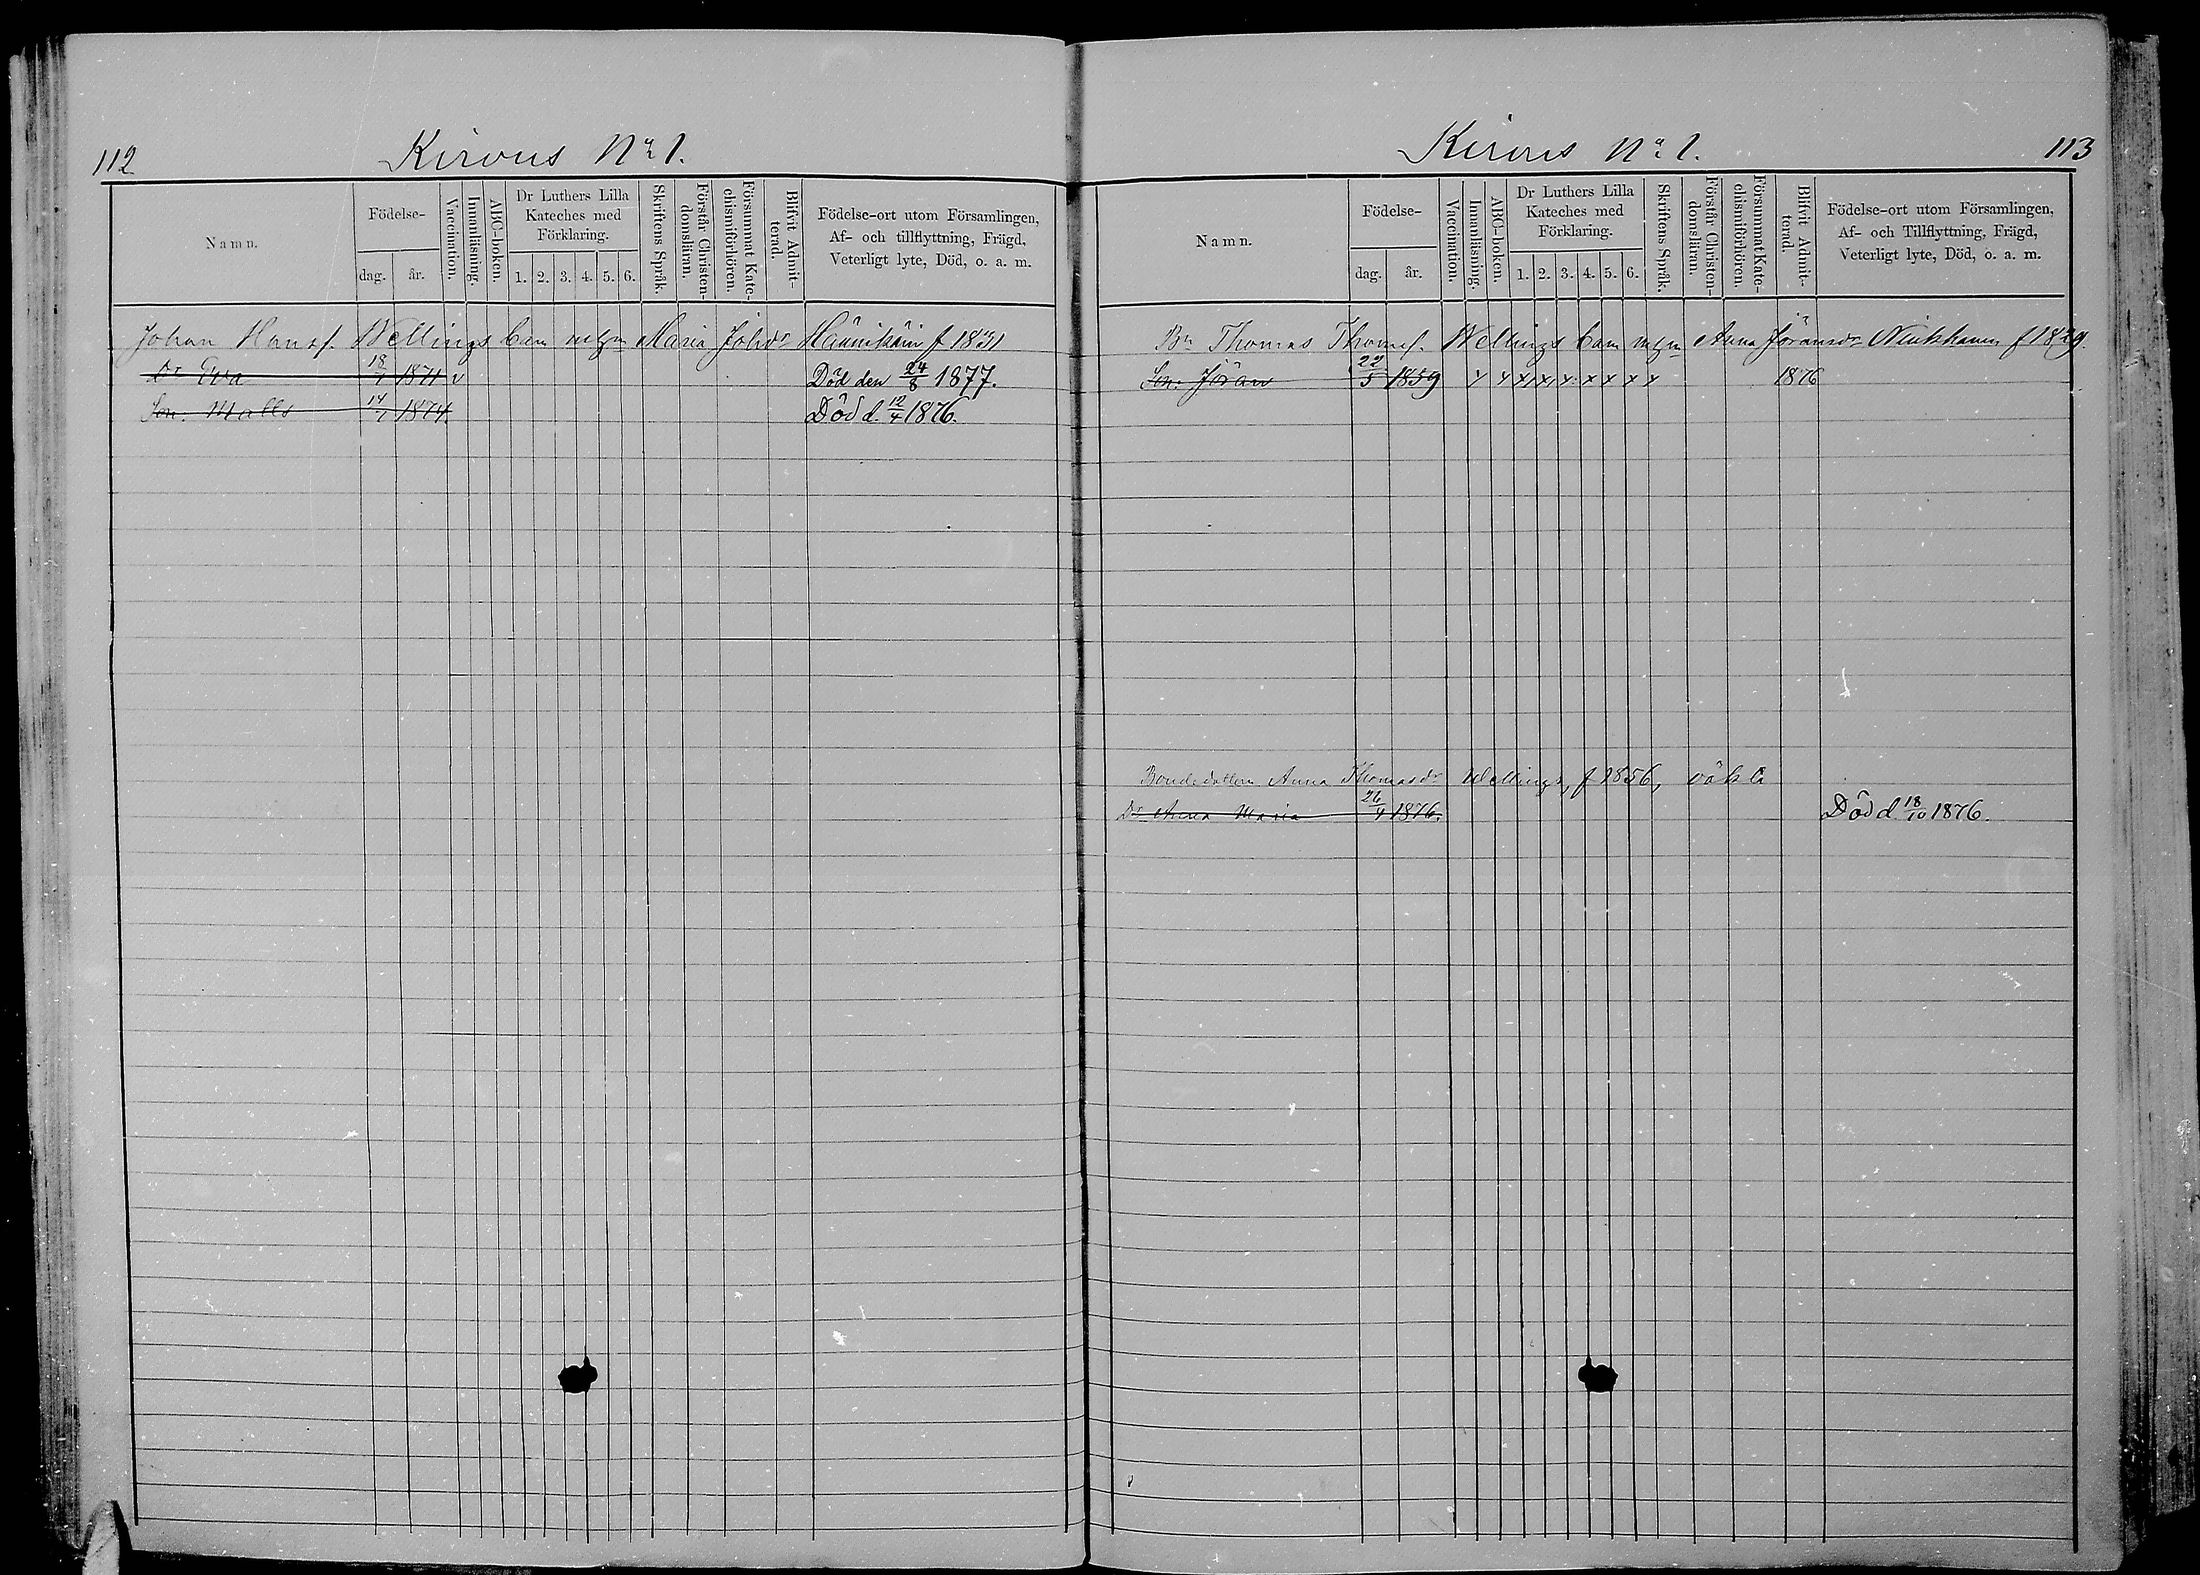 112
Kirvus No 1.
Namn.
Födelse-
dag.
år.
Vaccination.
Innanläsning.
ABC-boken.
Dr Luthers Lilla
Kateches med
Förklaring.
1. 2. 3. 4. 5. 6.
Skriftens Språk.
Förstår Christen-
domsläran.
Försummat Kate-
chismiförhören.
Blifvit Admit-
terad.
Födelse-ort utom Församlingen,
Af- och tillflyttning, Frägd,
Veterligt lyte, Död, o. a. m.
Johan Hansf. Wellings barn Maria Johdr f 1831
Dr Eva 18/4 1871 v Död den 24/8 1877.
Son: Matts 14/1 1874. Död d. 12/4 1876.
Kirvus No 1.
113
Namn.
Födelse-
dag.
år.
Vaccination.
Innanläsning.
ABC-boken.
Dr Luthers Lilla
Kateches med
Förklaring.
1. 2. 3. 4. 5. 6.
Skriftens Språk.
Förstår Christen-
domsläran.
Försummat Kate-
chismiförhören.
Blifvit Admit-
terad.
Födelse-ort utom Församlingen,
Af- och Tillflyttning, Frägd,
Veterligt lyte, Död, o. a. m.
Bn Thomas Thomsf. Wellings barn Anna Jöransdr f 1829.
Son: Jöran 22/5 1859 x x x x x x x x x 1876
Bondedottern Anna Thomasdr Wellings, f 1856,
Dr Anna Maria 26/4 1876. Död d 18/10 1876.